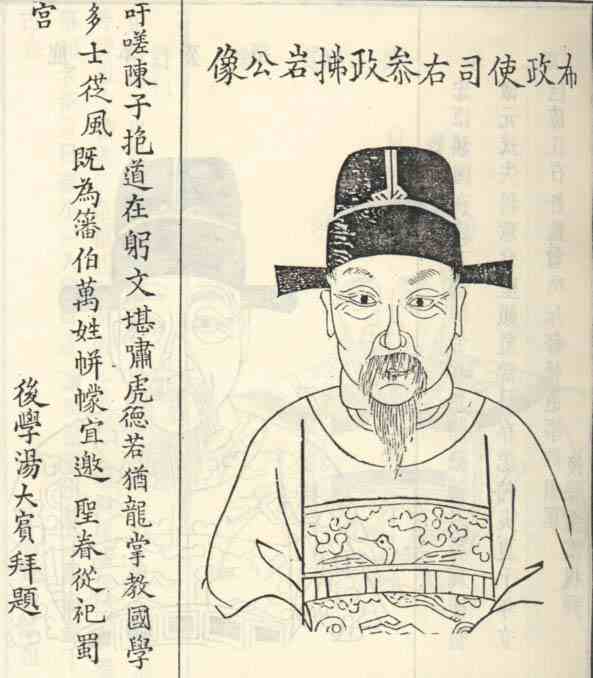 布政使司右叅政拂岩公像
吁嗟陳子抱道在躬文堪嘯虎德若猶龍掌教國學
多士從風既為籓伯萬姓帡幪宜邀聖春從祀蜀
宮
後學湯大賓拜題